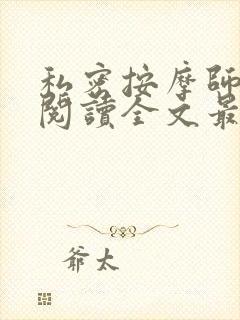 私密按摩師
閱讀全文最
爺太